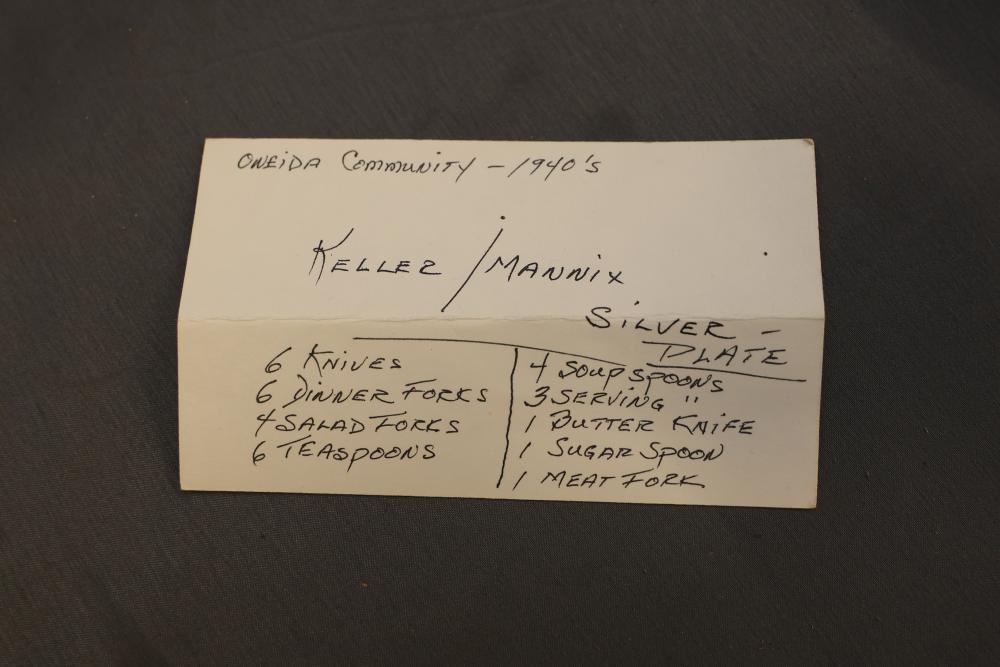 ONEIDA COMMUNITY - 1940's
KELLER / MANNIX
SILVER -
PLATE
6 KNIVES
6 DINNER FORKS
4 SALAD FORKS
6 TEASPOONS
4 SOUP SPOONS
3 SERVING "
1 BUTTER KNIFE
1 SUGAR SPOON
1 MEAT FORK